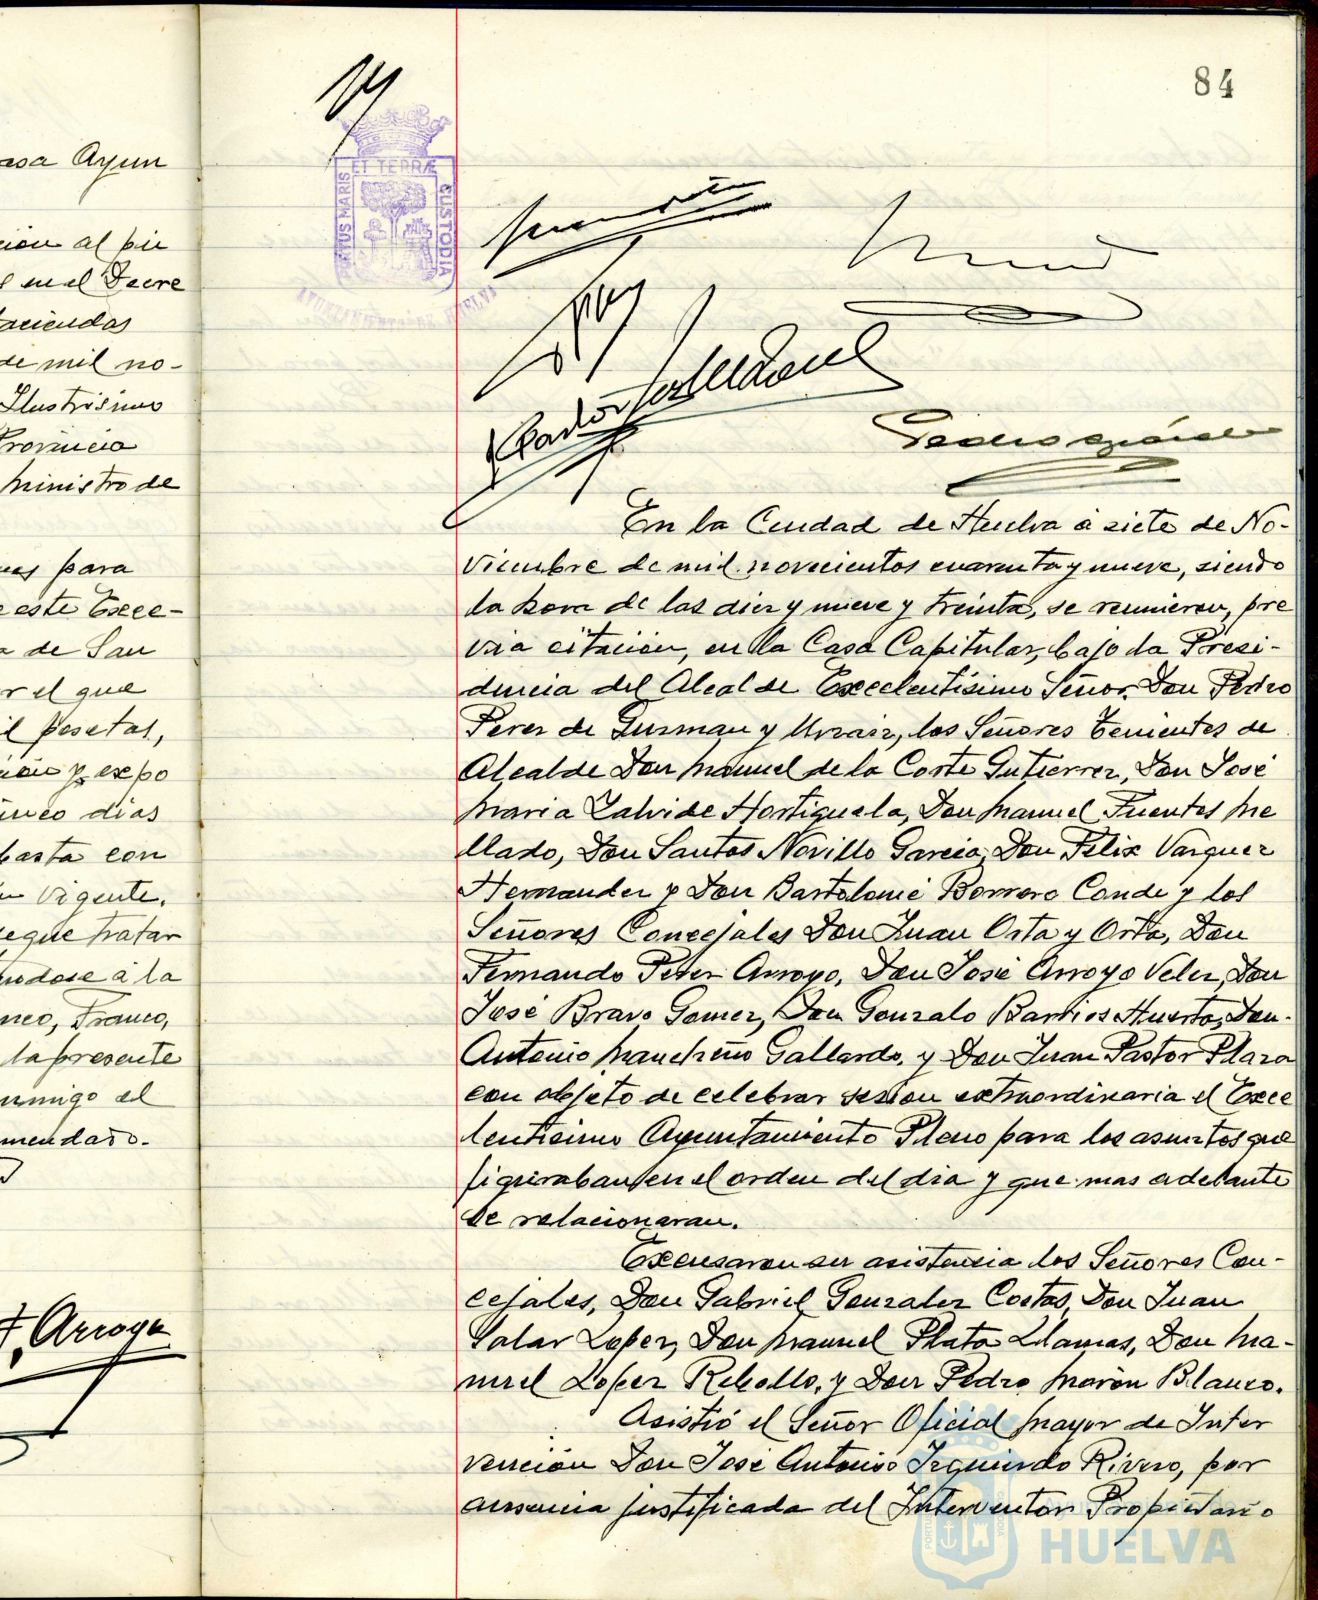 asa Ayun
ción al pii
s en el Decre
aciendas
de mil no-
Ilustrisimo
Provincia
Ministro de
nes para
e este Exce-
a de San
r el que
il pesetas,
ción y expo
inco dias
basta con
n vigente.
e que tratar
ndose á la
nco, Franco,
la presente
nmigo el
mendado.
F. Arroyo
84
PORTUS MARIS ET TERRÆ CUSTODIA
AYUNTAMIENTO DE HUELVA
J Pastor
Pedro
En la Ciudad de Huelva á siete de No-
viembre de mil novecientos cuarenta y nueve, siendo
la hora de las diez y nueve y treinta, se reunieron, pre
via citación, en la Casa Capitular, bajo la Presi-
dencia del Alcalde Excelentísimo Señor Don Pedro
Perez de Guzman y Urzaiz, los Señores Tenientes de
Alcalde Don Manuel de la Corte Gutierrez, Don José
Maria Zalvide Hortiguela, Don Manuel Fuentes Me
llado, Don Santos Novillo Garcia, Don Felix Vazquez
Hernandez y Don Bartolomé Borrero Conde y los
Señores Concejales Don Juan Orta y Orta, Don
Fernando Perez Arroyo, Don José Arroyo Velez, Don
José Bravo Gomez, Don Gonzalo Barrios Huerta, Don
Antonio Mancheño Gallardo, y Don Juan Pastor Plaza
con objeto de celebrar sesion extraordinaria el Exce
lentisimo Ayuntamiento Pleno para los asuntos que
figuraban en el orden del dia y que mas adelante
se relacionaran.
Excusaron su asistencia los Señores Con-
cejales, Don Gabriel Gonzalez Costas, Don Juan
Salar Lopez, Don Manuel Plata Llamas, Don Ma-
nuel Lopez Rebollo, y Don Pedro Morón Blanco.
Asistió el Señor Oficial Mayor de Inter
vención Don José Antonio Izquierdo Rivero, por
ausencia justificada del Interventor Propietario
HUELVA